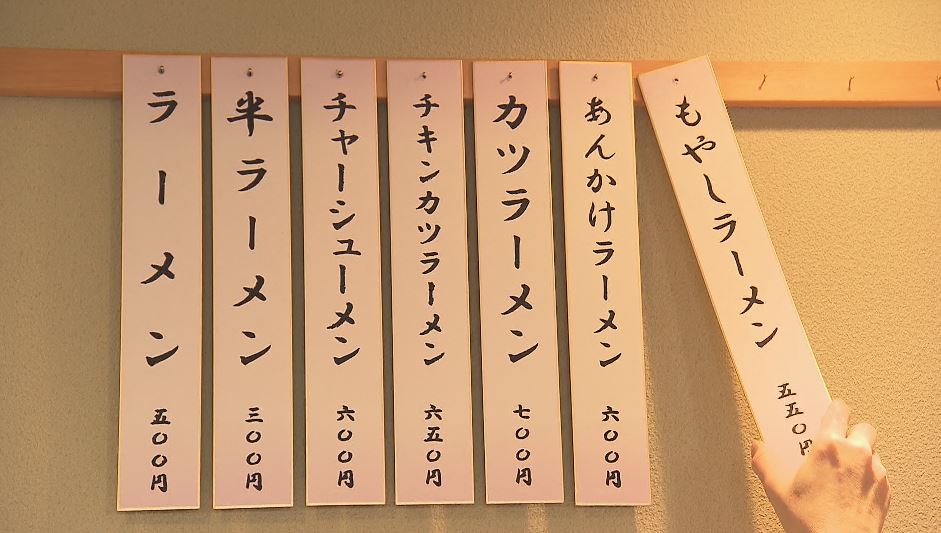 ラーメン 五〇〇円
半ラーメン 三〇〇円
チャーシューメン 六〇〇円
チキンカツラーメン 六五〇円
カツラーメン 七〇〇円
あんかけラーメン 六〇〇円
もやしラーメン 五五〇円